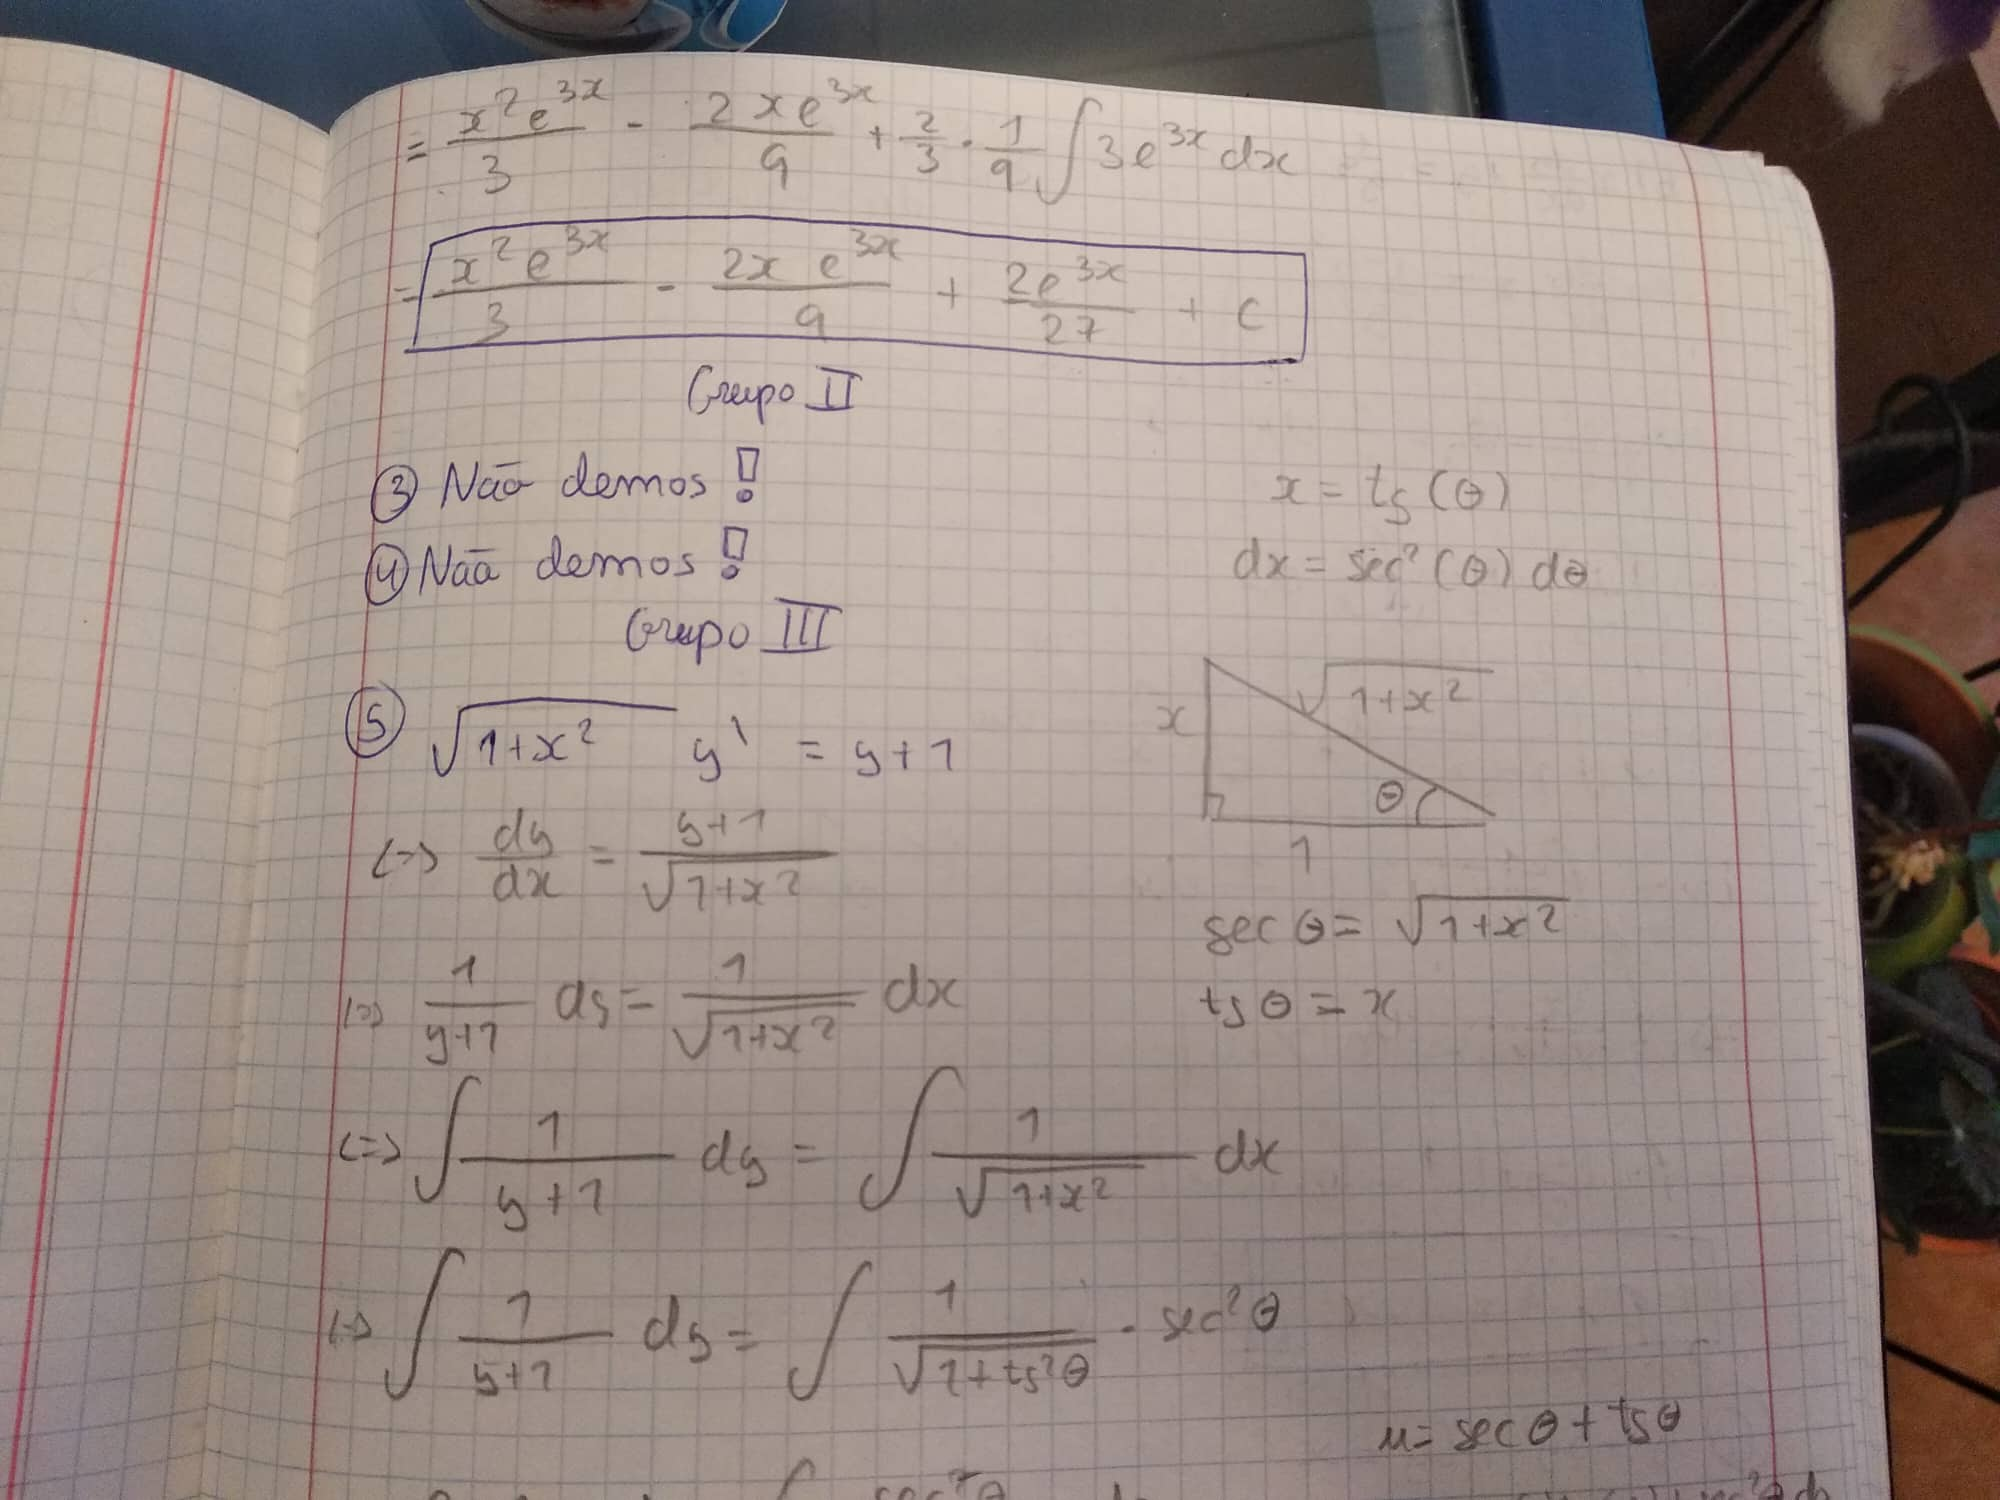 = x²e^3x/3 - 2xe^3x/9 + 2/3 · 1/9 ∫ 3e^3x dx
= x²e^3x/3 - 2x e^3x/9 + 2e^3x/27 + c
Grupo II
③ Não demos!
④ Não demos!
Grupo III
⑤ √(1+x²) y' = y+1
(=) dy/dx = y+1/√(1+x²)
(=) 1/y+1 dy = 1/√(1+x²) dx
(=) ∫ 1/y+1 dy = ∫ 1/√(1+x²) dx
(=) ∫ 1/y+1 dy = ∫ 1/√(1+tg²θ) · sec²θ
x = tg(θ)
dx = sec²(θ) dθ
x
√(1+x²)
θ
1
sec θ = √(1+x²)
tg θ = x
u = sec θ + tg θ
∫ sec²θ